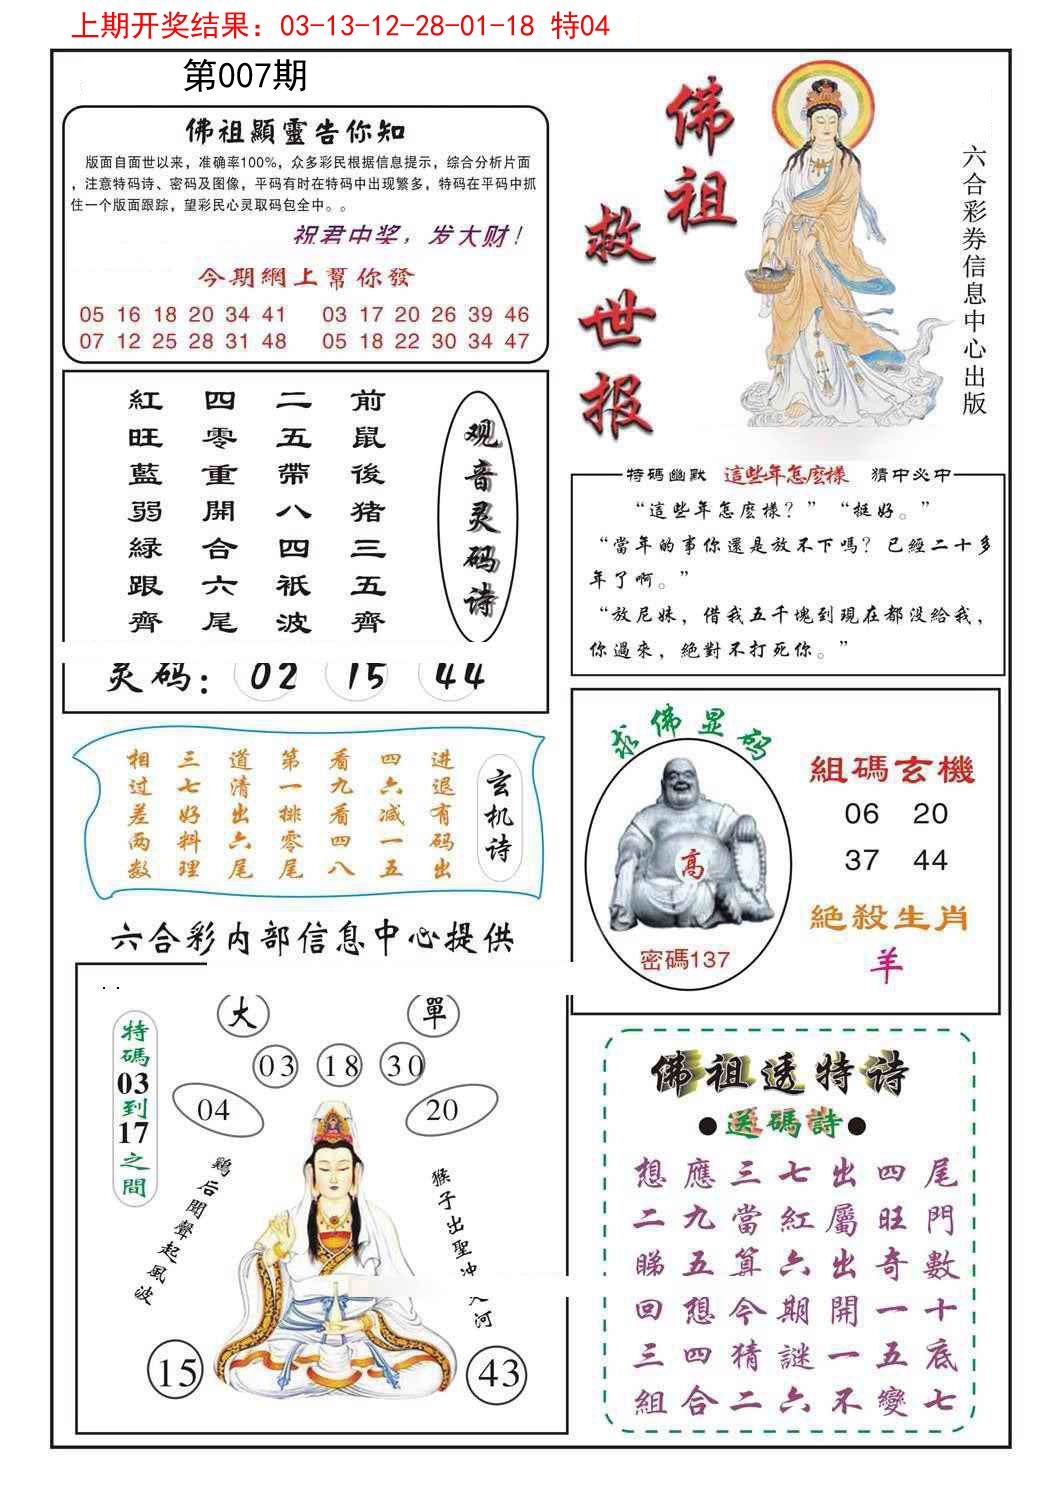 上期开奖结果：03-13-12-28-01-18 特04
第007期
佛祖顯靈告你知
版面自面世以来，准确率100%，众多彩民根据信息提示，综合分析片面
，注意特码诗、密码及图像，平码有时在特码中出现繁多，特码在平码中抓
住一个版面跟踪，望彩民心灵取码包全中。。
祝君中奖，发大财！
今期網上幫你發
05 16 18 20 34 41 03 17 20 26 39 46
07 12 25 28 31 48 05 18 22 30 34 47
佛祖
救世报
六合彩券信息中心出版
观音灵码诗
前鼠後猪三五齊
二五帶八四祇波
四零重開合六尾
紅旺藍弱緑跟齊
灵码：02 15 44
特碼幽默 這些年怎麽樣 猜中必中
“這些年怎麽樣？”“挺好。”
“當年的事你還是放不下嗎？已經二十多
年了啊。”
“放尼妹，借我五千塊到現在都没給我，
你過來，絶對不打死你。”
玄机诗
进退有码出
四六减一五
看九看四八
第一排零尾
道清出六尾
三七好料理
相过差两数
求佛显码
高
密碼137
組碼玄機
06 20
37 44
絕殺生肖
羊
六合彩内部信息中心提供
. .
大 單
03 18 30
04 20
特碼03到17之間
鷄后聞聲起風波
猴子出聖冲天河
15 43
佛祖透特诗
●送碼詩●
想應三七出四尾
二九當紅屬旺門
睇五算六出奇數
回想今期開一十
三四猜謎一五底
組合二六不變七